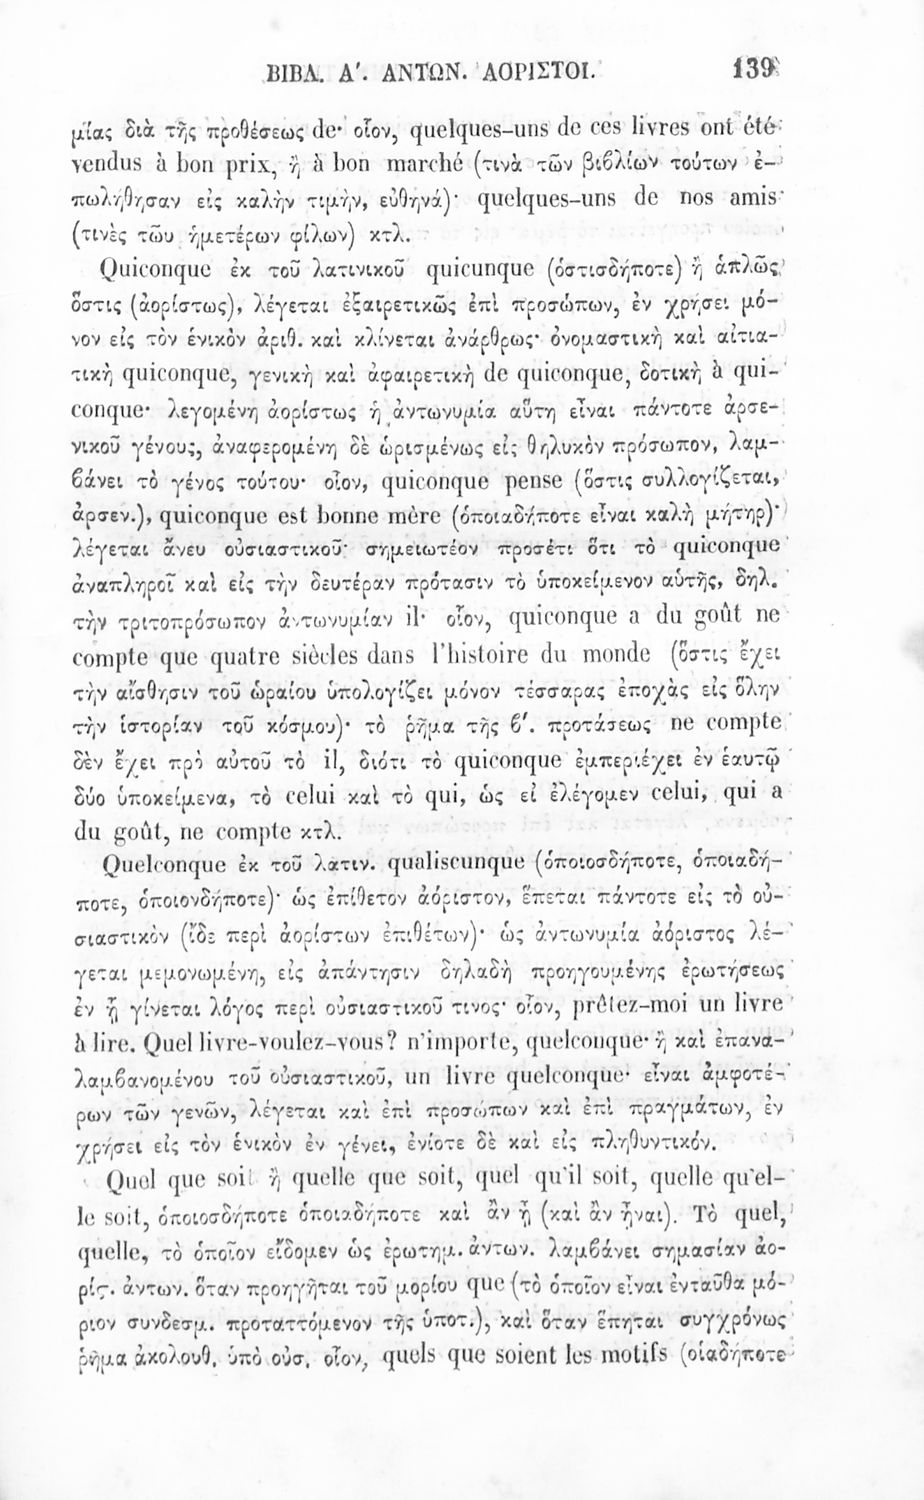 ΒΙΒΛ. Α΄. ΑΝΤΩΝ. ΑΟΡΙΣΤΟΙ. 139
μίας διὰ τῆς προθέσεως de· οἷον, quelques-uns de ces livres ont été
vendus à bon prix, ἢ à bon marché (τινὰ τῶν βιβλίων τούτων ἐ-
πωλήθησαν εἰς καλὴν τιμὴν, εὐθηνά)· quelques-uns de nos amis
(τινὲς τῶυ ἡμετέρων φίλων) κτλ.
Quiconque ἐκ τοῦ λατινικοῦ quicunque (ὁστισδήποτε) ἢ ἁπλῶς
ὅστις (ἀορίστως), λέγεται ἐξαιρετικῶς ἐπὶ προσώπων, ἐν χρήσει μό-
νον εἰς τὸν ἑνικὸν ἀριθ. καὶ κλίνεται ἀνάρθρως· ὀνομαστικὴ καὶ αἰτια-
τικὴ quiconque, γενικὴ καὶ ἀφαιρετικὴ de quiconque, δοτικὴ à qui-
conque· λεγομένη ἀορίστως ἡ ἀντωνυμία αὕτη εἶναι πάντοτε ἀρσε-
νικοῦ γένους, ἀναφερομένη δὲ ὡρισμένως εἰς θηλυκὸν πρόσωπον, λαμ-
βάνει τὸ γένος τούτου· οἷον, quiconque pense (ὅστις συλλογίζεται,
ἀρσεν.), quiconque est bonne mère (ὁποιαδήποτε εἶναι καλὴ μήτηρ)·
λέγεται ἄνευ οὐσιαστικοῦ· σημειωτέον προσέτι ὅτι τὸ quiconque
ἀναπληροῖ καὶ εἰς τὴν δευτέραν πρότασιν τὸ ὑποκείμενον αὐτῆς, δηλ.
τὴν τριτοπρόσωπον ἀντωνυμίαν il· οἷον, quiconque a du goût ne
compte que quatre siècles dans l'histoire du monde (ὅστις ἔχει
τὴν αἴσθησιν τοῦ ὡραίου ὑπολογίζει μόνον τέσσαρας ἐποχὰς εἰς ὅλην
τὴν ἱστορίαν τοῦ κόσμου)· τὸ ῥῆμα τῆς β΄. προτάσεως ne compte
δὲν ἔχει πρὸ αὐτοῦ τὸ il, διότι τὸ quiconque ἐμπεριέχει ἐν ἑαυτῷ
δύο ὑποκείμενα, τὸ celui καὶ τὸ qui, ὡς εἰ ἐλέγομεν celui, qui a
du goût, ne compte κτλ.
Quelconque ἐκ τοῦ λατιν. qualiscunque (ὁποιοσδήποτε, ὁποιαδή-
ποτε, ὁποιονδήποτε)· ὡς ἐπίθετον ἀόριστον, ἕπεται πάντοτε εἰς τὸ οὐ-
σιαστικὸν (ἴδε περὶ ἀορίστων ἐπιθέτων)· ὡς ἀντωνυμία ἀόριστος λέ-
γεται μεμονωμένη, εἰς ἀπάντησιν δηλαδὴ προηγουμένης ἐρωτήσεως
ἐν ᾗ γίνεται λόγος περὶ οὐσιαστικοῦ τινος· οἷον, prêtez-moi un livre
à lire. Quel livre-voulez-vous? n'importe, quelconque· ἢ καὶ ἐπανα-
λαμβανομένου τοῦ οὐσιαστικοῦ, un livre quelconque· εἶναι ἀμφοτέ-
ρων τῶν γενῶν, λέγεται καὶ ἐπὶ προσώπων καὶ ἐπὶ πραγμάτων, ἐν
χρήσει εἰς τὸν ἑνικὸν ἐν γένει, ἐνίοτε δὲ καὶ εἰς πληθυντικόν.
Quel que soit ἢ quelle que soit, quel qu'il soit, quelle qu'el-
le soit, ὁποιοσδήποτε ὁποιαδήποτε καὶ ἂν ᾖ (καὶ ἂν ἦναι). Τὸ quel,
quelle, τὸ ὁποῖον εἴδομεν ὡς ἐρωτημ. ἀντων. λαμβάνει σημασίαν ἀο-
ρίς. ἀντων. ὅταν προηγῆται τοῦ μορίου que (τὸ ὁποῖον εἶναι ἐνταῦθα μό-
ριον συνδεσμ. προταττόμενον τῆς ὑποτ.), καὶ ὅταν ἕπηται συγχρόνως
ῥῆμα ἀκολουθ. ὑπὸ οὐσ. οἷον, quels que soient les motifs (οἱαδήποτε